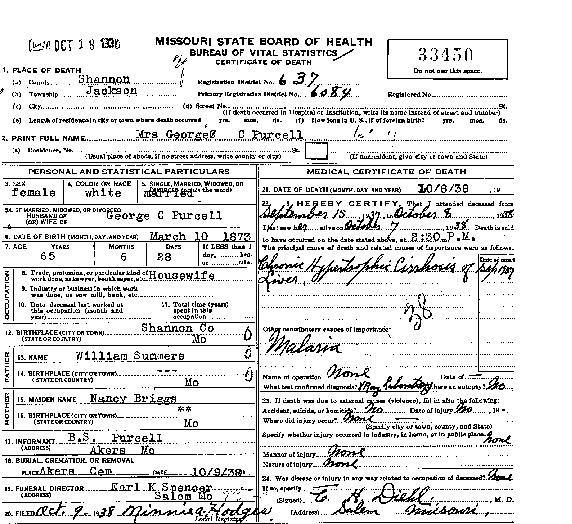 OCT 18 1938
MISSOURI STATE BOARD OF HEALTH
BUREAU OF VITAL STATISTICS
CERTIFICATE OF DEATH
33450
Do not use this space.
1. PLACE OF DEATH
(a) County Shannon
Registration District No. 637
(b) Township Jackson
Primary Registration District No. 6084
Registered No.
(c) City
(d) Street No. St.
(If death occurred in Hospital or institution, write its name instead of street and number)
(e) Length of residence in city or town where death occurred yrs. mos. ds. (f) How long in U. S., if of foreign birth? yrs. mos. ds.
2. PRINT FULL NAME Mrs George C Purcell
(a) Residence, No. St.
(Usual place of abode, if no street address, write county or city)
(If nonresident, give city or town and State)
PERSONAL AND STATISTICAL PARTICULARS
3. SEX female
4. COLOR OR RACE white
5. SINGLE, MARRIED, WIDOWED, OR married
5A. IF MARRIED, WIDOWED, OR DIVORCED
HUSBAND OF
(OR) WIFE OF George C Purcell
6. DATE OF BIRTH (MONTH, DAY, AND YEAR) March 10 1873
7. AGE YEARS MONTHS DAYS If LESS than 1
65 6 28
OCCUPATION
8. Trade, profession, or particular kind of Housewife
9. Industry or business in which work
was done, as saw mill, bank, etc.
10. Date deceased last worked at
this occupation (month and
year)
11. Total time (years)
spent in this
occupation
12. BIRTHPLACE (CITY OR TOWN) Shannon Co
(STATE OR COUNTRY) Mo
FATHER
13. NAME William Summers
14. BIRTHPLACE (CITY OR TOWN) ---
(STATE OR COUNTRY) Mo
MOTHER
15. MAIDEN NAME Nancy Briggs
16. BIRTHPLACE (CITY OR TOWN) **
(STATE OR COUNTRY) Mo
17. INFORMANT B.S. Purcell
(ADDRESS) Akers Mo
18. BURIAL, CREMATION, OR REMOVAL
PLACE Akers Cem. DATE 10/9/38
19. FUNERAL DIRECTOR Karl K Spencer
(ADDRESS) Salem Mo
20. FILED Oct. 9, 1938 Minnie Hodges
MEDICAL CERTIFICATE OF DEATH
21. DATE OF DEATH (MONTH, DAY AND YEAR) 10/8/38
22. I HEREBY CERTIFY, That I attended deceased from
September 15 1937 October 8 1938
I last saw her alive on October 7 1938 Death is said
to have occurred on the date stated above, at 8:30 P.M.
The principal cause of death and related causes of importance were as follows:
Date of onset
Chronic Hypertrophic Cirrhosis of Sep 1937
Liver.
Other contributory causes of importance:
Malaria
Name of operation None Date of
What test confirmed diagnosis? Was there an autopsy? No
23. If death was due to external causes (violence), fill in also the following:
Accident, suicide, or homicide? No Date of injury No
Where did injury occur? None
(Specify city or town, county, and State)
Specify whether injury occurred in industry, in home, or in public place.
None
Manner of injury None
Nature of injury None
24. Was disease or injury in any way related to occupation of deceased? None
If so, specify
(Signed) H. Diehl, M. D.
(Address) Salem Missouri